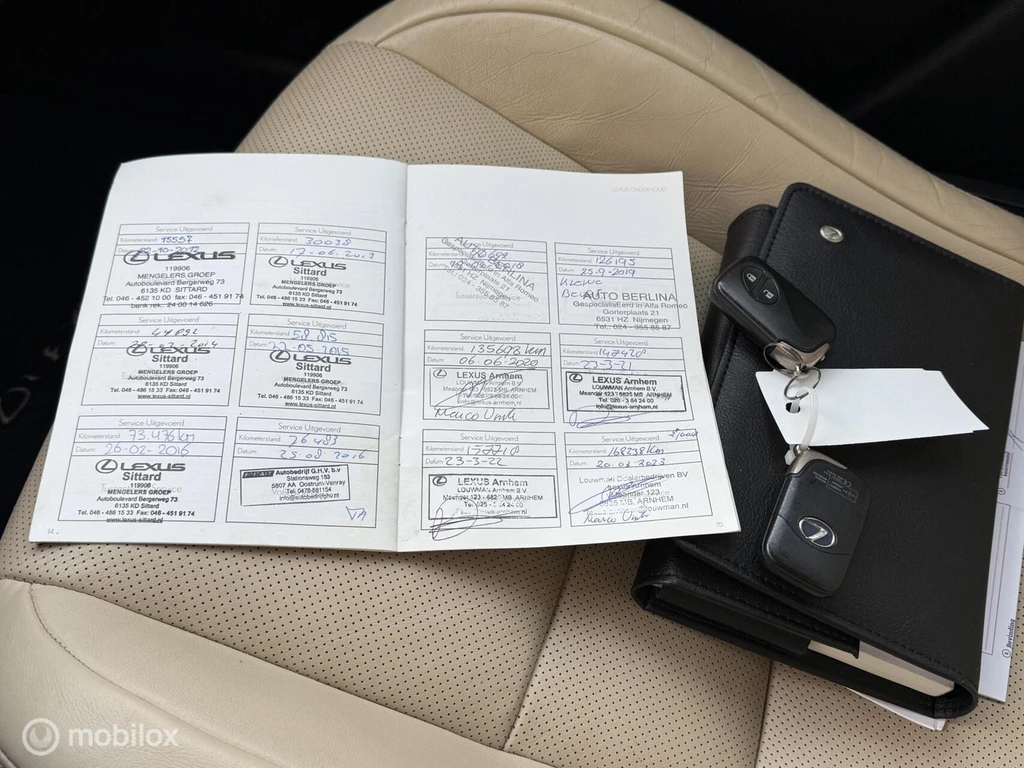 LEXUS ONDERHOUD
Service Uitgevoerd
Kilometerstand: 15557
Datum:
LEXUS
119906
MENGELERS GROEP
Autoboulevard Bergerweg 73
6135 KD SITTARD
Tel. 046 - 452 10 00 fax: 046 - 451 91 74
Service Uitgevoerd
Kilometerstand: 30038
Datum:
LEXUS
Sittard
119906
MENGELERS GROEP
Autoboulevard Bergerweg 73
6135 KD Sittard
Tel. 046 - 486 15 33 Fax 046 - 451 91 74
www.lexus-sittard.nl
Service Uitgevoerd
Kilometerstand: 44892
Datum:
LEXUS
Sittard
119906
MENGELERS GROEP
Autoboulevard Bergerweg 73
6135 KD Sittard
Tel. 046 - 486 15 33 Fax 046 - 451 91 74
www.lexus-sittard.nl
Service Uitgevoerd
Kilometerstand: 58.815
Datum: 22-05-2015
LEXUS
Sittard
119906
MENGELERS GROEP
Autoboulevard Bergerweg 73
6135 KD Sittard
Tel. 046 - 486 15 33 Fax 046 - 451 91 74
www.lexus-sittard.nl
Service Uitgevoerd
Kilometerstand: 73.476 km
Datum: 26-02-2016
LEXUS
Sittard
119906
MENGELERS GROEP
Autoboulevard Bergerweg 73
6135 KD Sittard
Tel. 046 - 486 15 33 Fax: 046 - 451 91 74
www.lexus-sittard.nl
Service Uitgevoerd
Kilometerstand: 76483
Datum: 25 08 2016
Autobedrijf G.H.V. b.v
Stationsweg 183
5807 AA Oostrum-Venray
Tel. 0478-581154
info@autobedrijfghv.nl
14
Service Uitgevoerd
Kilometerstand:
Datum:
Service Uitgevoerd
Kilometerstand: 126195
Datum: 25-9-2019
Kleine
Beurt
AUTO BERLINA
Gespecialiseerd in Alfa Romeo
Gorterplaats 21
6531 HZ Nijmegen
Tel.: 024 - 355 85 87
Service Uitgevoerd
Kilometerstand: 135678 km
Datum: 06 06 2020
LEXUS Arnhem
LOUWMAN Arnhem B.V.
Service Uitgevoerd
Kilometerstand: 147420
Datum: 23-3-21
LEXUS Arnhem
LOUWMAN Arnhem B.V.
Meander 123 - 6825 MB ARNHEM
Tel. 026 - 3 64 24 00
info@lexus-arnhem.nl
Service Uitgevoerd
Kilometerstand:
Datum: 23-3-22
LEXUS Arnhem
LOUWMAN Arnhem B.V.
Meander 123 - 6825 MB ARNHEM
Service Uitgevoerd
Kilometerstand: 168238 km
Datum: 20.03 2023
Louwman Dealerbedrijven BV
Meander 123
ARNHEM
louwman.nl
15
Bestelling
mobilox